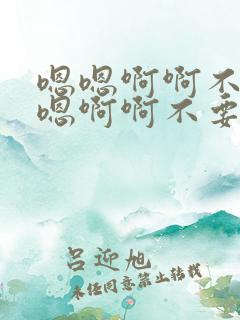 嗯嗯啊啊不
嗯啊啊不要
吕迎旭
未经同意禁止转载